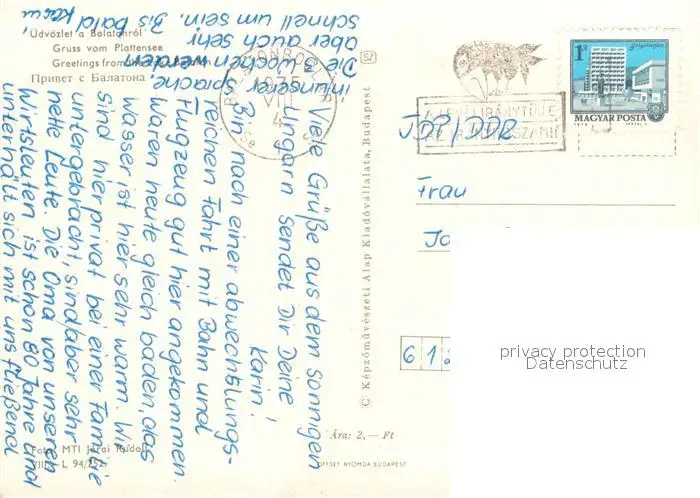 Üdvözlet a Balatonról
Gruss vom Plattensee
Greetings from
Привет с Балатона
Viele Grüße aus dem sonnigen
Ungarn sendet Dir Deine
Karin!
Bin nach einer abwechslungs-
reichen Fahrt mit Bahn und
Flugzeug gut hier angekommen.
Waren heute gleich baden, das
Wasser ist hier sehr warm. Wir
sind hier privat bei einer Familie
untergebracht, sind aber sehr
nette Leute. Die Oma von unseren
Wirtsleuten ist schon 80 Jahre und
unterhält sich mit uns fließend
in ungarischer Sprache.
Die 3 Wochen werden
aber auch sehr
schnell um sein.
Bis bald
Foto: MTI Járai Rudolf
L 94/
© Képzőművészeti Alap Kiadóvállalata, Budapest
SZ
Ára: 2,— Ft
OFFSET NYOMDA BUDAPEST
1 Ft
MAGYAR POSTA
DDR
Frau
61
privacy protection
Datenschutz